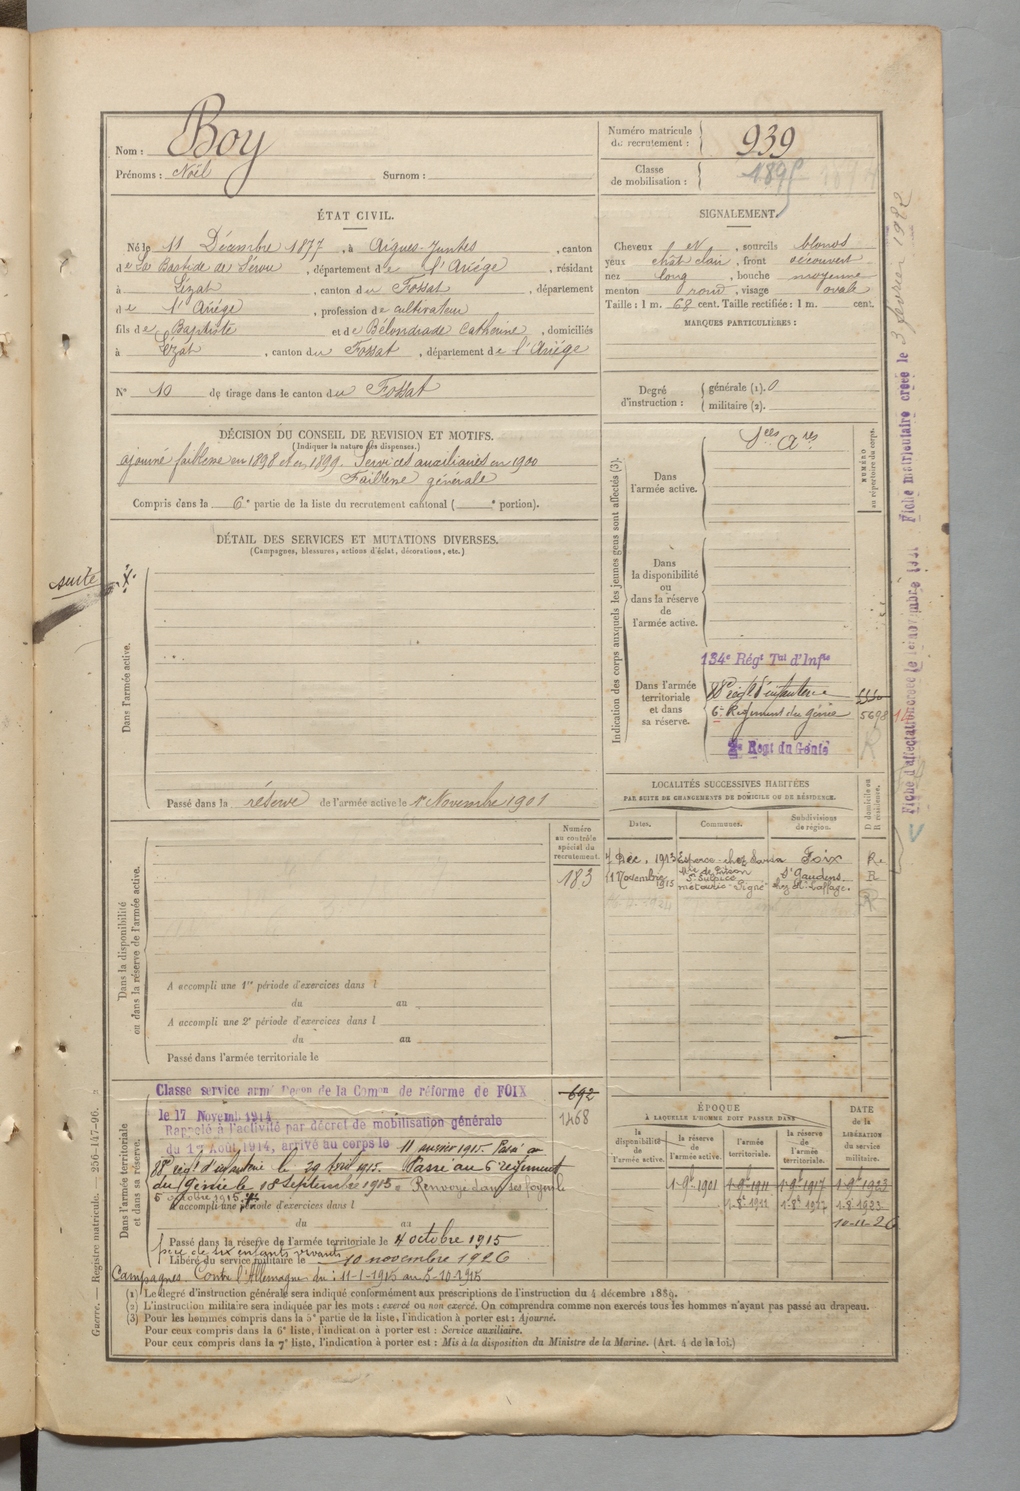 Nom : Boy
Prénoms : Noël Surnom :
Numéro matricule du recrutement : 939
Classe de mobilisation : 1895
ÉTAT CIVIL.
Né le 11 Décembre 1877, à Aigues-Juntes, canton
de La Bastide de Sérou, département de l'Ariége, résidant
à Lézat, canton du Fossat, département
de l'Ariége, profession de cultivateur
fils de Baptiste et de Bélondrade Catherine, domiciliés
à Lézat, canton du Fossat, département de l'Ariége
N° 10 de tirage dans le canton du Fossat
SIGNALEMENT.
Cheveux , sourcils blonds
yeux chât clair, front découvert
nez long, bouche moyenne
menton rond, visage ovale
Taille : 1 m. 68 cent. Taille rectifiée : 1 m. cent.
MARQUES PARTICULIÈRES :
Degré d'instruction : générale (1). 0
militaire (2).
DÉCISION DU CONSEIL DE REVISION ET MOTIFS.
(Indiquer la nature des dispenses.)
ajourné faiblesse en 1898 et en 1899. Services auxiliaires en 1900
Faiblesse générale
Compris dans la 6e partie de la liste du recrutement cantonal ( e portion).
DÉTAIL DES SERVICES ET MUTATIONS DIVERSES.
(Campagnes, blessures, actions d'éclat, décorations, etc.)
suite
Dans l'armée active.
Passé dans la réserve de l'armée active le 1er Novembre 1901
Indication des corps auxquels les jeunes gens sont affectés (3).
NUMÉRO au répertoire du corps.
Dans l'armée active.
Dans la disponibilité ou dans la réserve de l'armée active.
Dans l'armée territoriale et dans sa réserve.
134e Régt Tal d'Infie
88e régt d'infanterie
6e Régiment du génie 5698
2e Regt du Génie
Fiche d'affectation créée le
Fiche matriculaire créée le 3 février 1922
LOCALITÉS SUCCESSIVES HABITÉES
PAR SUITE DE CHANGEMENTS DE DOMICILE OU DE RÉSIDENCE.
D domicile ou R résidence.
Dates. Communes. Subdivisions de région.
7 Déc. 1913 Esperce - chez Foix R.
11 Novembre 1915 St Sulpice St Gaudens R
Dans la disponibilité ou dans la réserve de l'armée active.
Numéro au contrôle spécial du recrutement.
183
A accompli une 1re période d'exercices dans l
du au
A accompli une 2e période d'exercices dans l
du au
Passé dans l'armée territoriale le
Dans l'armée territoriale et dans sa réserve.
Classe service armé Décon de la Comon de réforme de FOIX
692
le 17 Novemb 1914
1468
Rappelé à l'activité par décret de mobilisation générale
du 1er Août 1914, arrivé au corps le 11 janvier 1915. Passé au
88e régt d'infanterie le 29 Avril 1915. Passé au 6e régiment
du Génie le 18 Septembre 1915. Renvoyé dans ses foyers le
5 octobre 1915
A accompli une période d'exercices dans l
du au
Passé dans la réserve de l'armée territoriale le 4 octobre 1915
père de six enfants vivants
Libéré du service militaire le 10 novembre 1926
Campagnes. Contre l'Allemagne du : 11-1-1915 au 5-10-1915
ÉPOQUE À LAQUELLE L'HOMME DOIT PASSER DANS
DATE de la LIBÉRATION du service militaire.
la disponibilité de l'armée active. la réserve de l'armée active. l'armée territoriale. la réserve de l'armée territoriale.
1-9bre-1901 1-9bre-1911 1-9bre-1917 1-9bre-1923
1-8-1911 1-8-1917 1-8-1923
10-11-26
(1) Le degré d'instruction générale sera indiqué conformément aux prescriptions de l'instruction du 4 décembre 1889.
(2) L'instruction militaire sera indiquée par les mots : exercé ou non exercé. On comprendra comme non exercés tous les hommes n'ayant pas passé au drapeau.
(3) Pour les hommes compris dans la 5e partie de la liste, l'indication à porter est : Ajourné.
Pour ceux compris dans la 6e liste, l'indication à porter est : Service auxiliaire.
Pour ceux compris dans la 7e liste, l'indication à porter est : Mis à la disposition du Ministre de la Marine. (Art. 4 de la loi.)
Guerre. — Registre matricule. — 256-147-96.